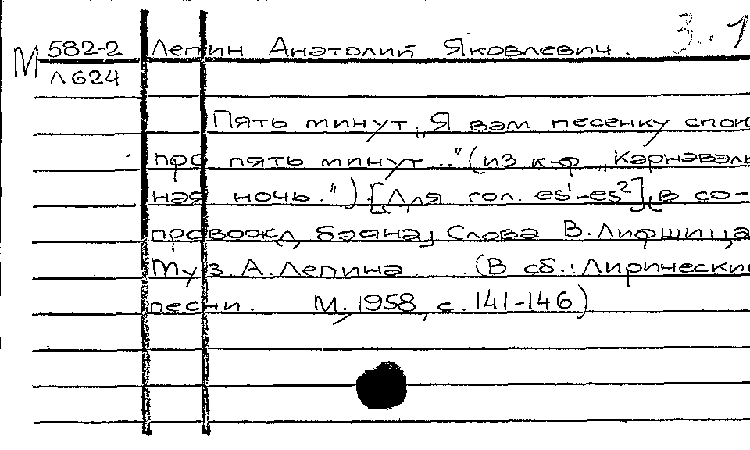 582-2 Лепин Анатолий Яковлевич. 3.1
М Л624
Пять минут „Я вам песенку спою
про пять минут..." (из к-ф „Карнаваль-
ная ночь.") [Для гол. es¹-es²] в со-
провожд. баяна Слова В. Лифшица
Муз. А. Лепина (В сб.: Лирические
песни. М., 1958, с. 141-146)